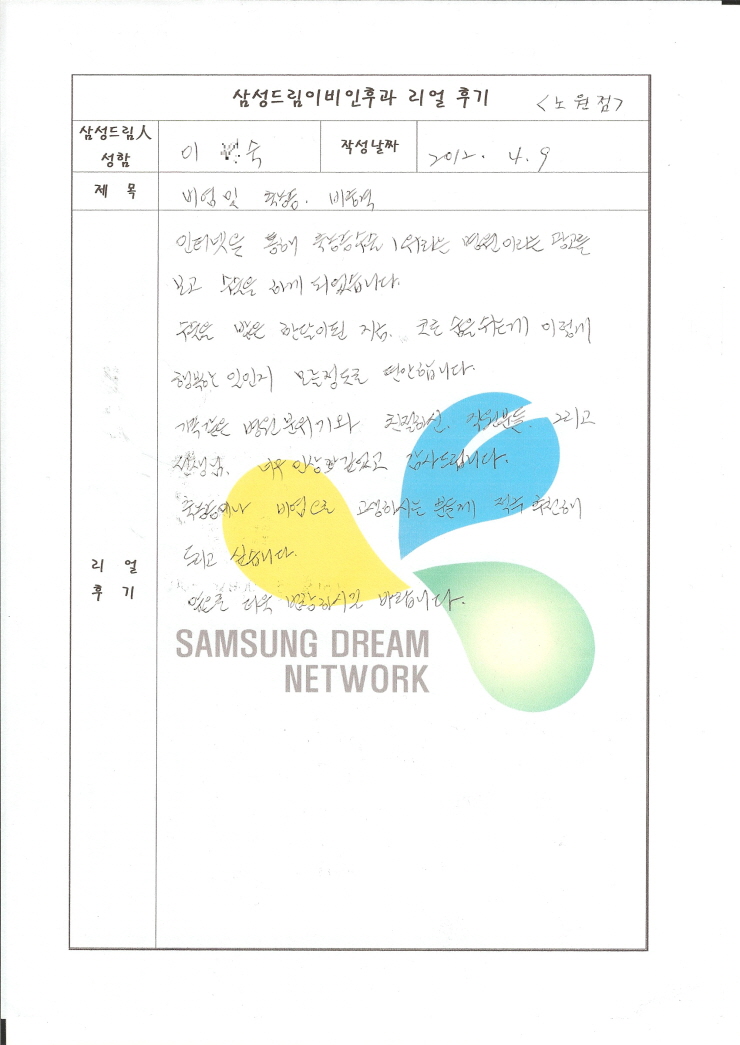 삼성드림이비인후과 리얼 후기 <노원점>
삼성드림人 성함
이 숙
작성날짜
2012. 4. 9
제 목
비염 및 축농증. 비중격
인터넷을 통해 축농증수술 1위라는 병원이라는 광고를
보고 수술을 하게 되었습니다.
수술을 받은 한달이된 지금. 코로 숨을 쉬는게 이렇게
행복한 일인지 모를정도로 편안합니다.
가족같은 병원분위기와 친절하신 직원분들. 그리고
선생님. 너무 인상깊었고 감사드립니다.
축농증이나 비염으로 고생하시는 분들께 적극 추천해
드리고 싶습니다.
앞으로 더욱 번창하시길 바랍니다.
리 얼
후 기
SAMSUNG DREAM
NETWORK